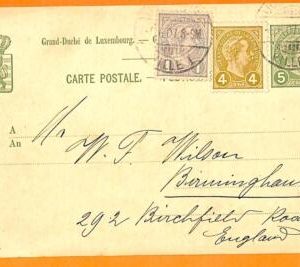 Grand-Duché de Luxembourg.
CARTE POSTALE.
4
4
5
A
An
Mr. W. F. Wilson
Birmingham
292 Birchfield Road
England